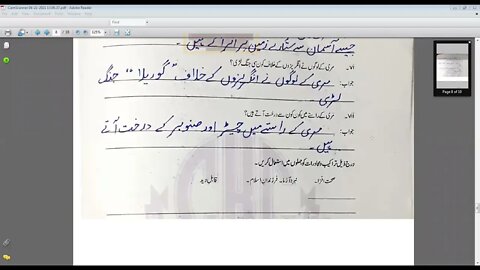 CamScanner 06-22-2021 13.06.27.pdf - Adobe Reader
File Edit View Window Help
8 / 10 125% Find
جیسے آسمان سے ستارے زمین پر اتر آئے ہیں
مری کے لوگوں نے انگریزوں کے خلاف کون سی جنگ لڑی؟
جواب: مری کے لوگوں نے انگریزوں کے خلاف "گوریلا" جنگ
لڑی۔
مری کے راستے میں کون کون سے درخت آتے ہیں؟
جواب: مری کے راستے میں چیڑ اور صنوبر کے درخت آتے
ہیں۔
درج ذیل تراکیب و محاورات کو جملوں میں استعمال کریں۔
صحت افزا۔ نبرد آزما۔ فرزندانِ اسلام۔ قابلِ دید
Page 8 of 10